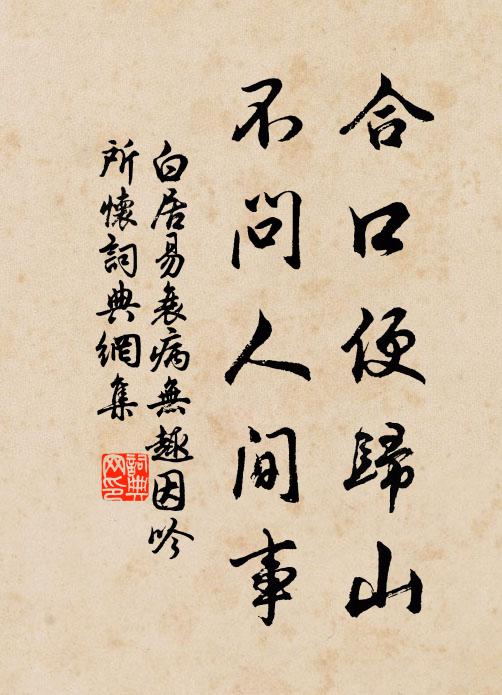 合口便歸山
不問人間事
白居易衰病無趣因吟
所懷詞典網集
詞典
网印